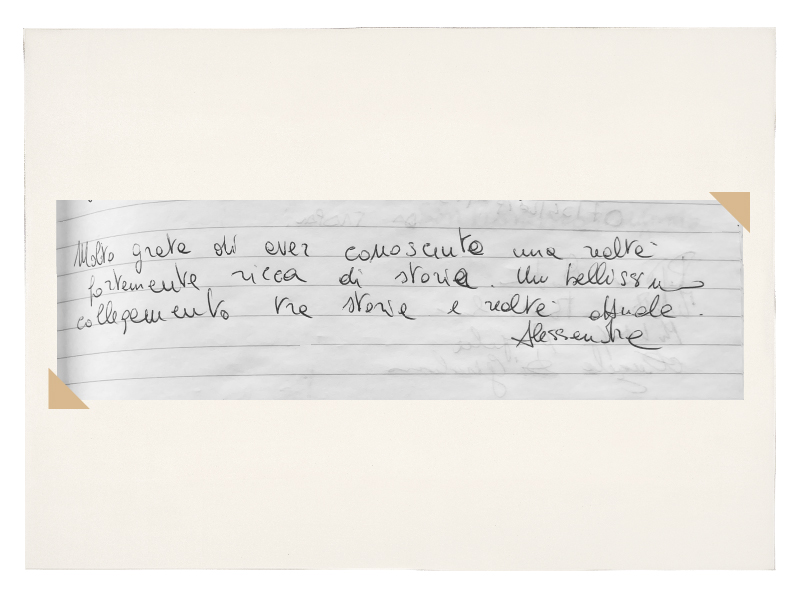 Molto grata di aver conosciuto una realtà
fortemente ricca di storia. Un bellissimo
collegamento tra storia e realtà attuale.
Alessandra